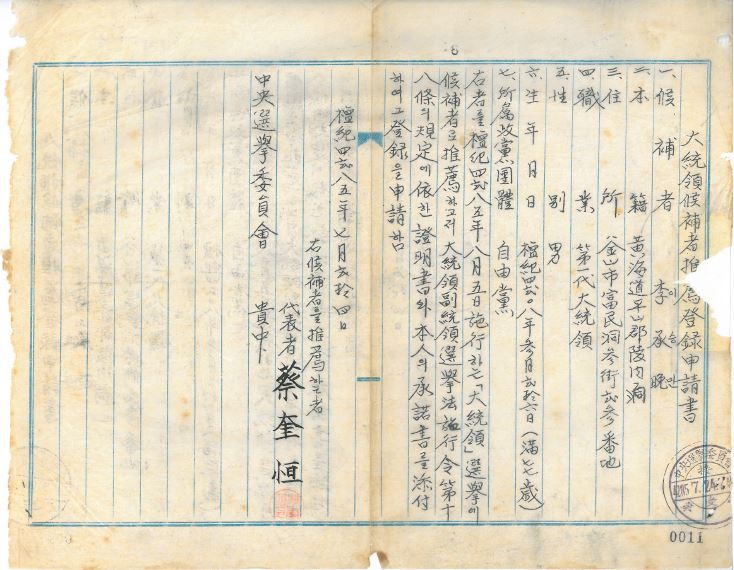 大統領候補者推薦登録申請書
一、候補者 李承晩
이승만
二、本籍 黃海道平山郡陵內洞
三、住所 釜山市富民洞參街貳參番地
四、職業 第一代大統領
五、性別 男
六、生年月日 檀紀四貳〇八年參月貳拾六日(滿七七歲)
七、所屬政黨團體 自由黨
右者를檀紀四貳八五年八月五日施行하는「大統領」選擧에
候補者로推薦하고저大統領副統領選擧法施行令第十
八條의規定에依한證明書와本人의承諾書를添付
하여그登録을申請함
檀紀四貳八五年七月貳拾四日
右候補者를推薦하는者
代表者 蔡奎恒
中央選擧委員會 貴中
中央選擧委員會
4285.7.24
0011